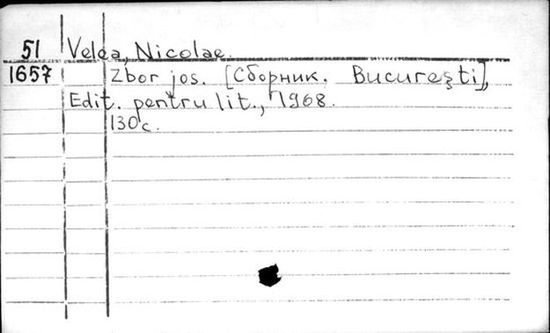 51 Velea, Nicolae.
1657 Zbor jos. [Сборник. Bucureşti],
Edit. pentru lit., 1968.
130 с.